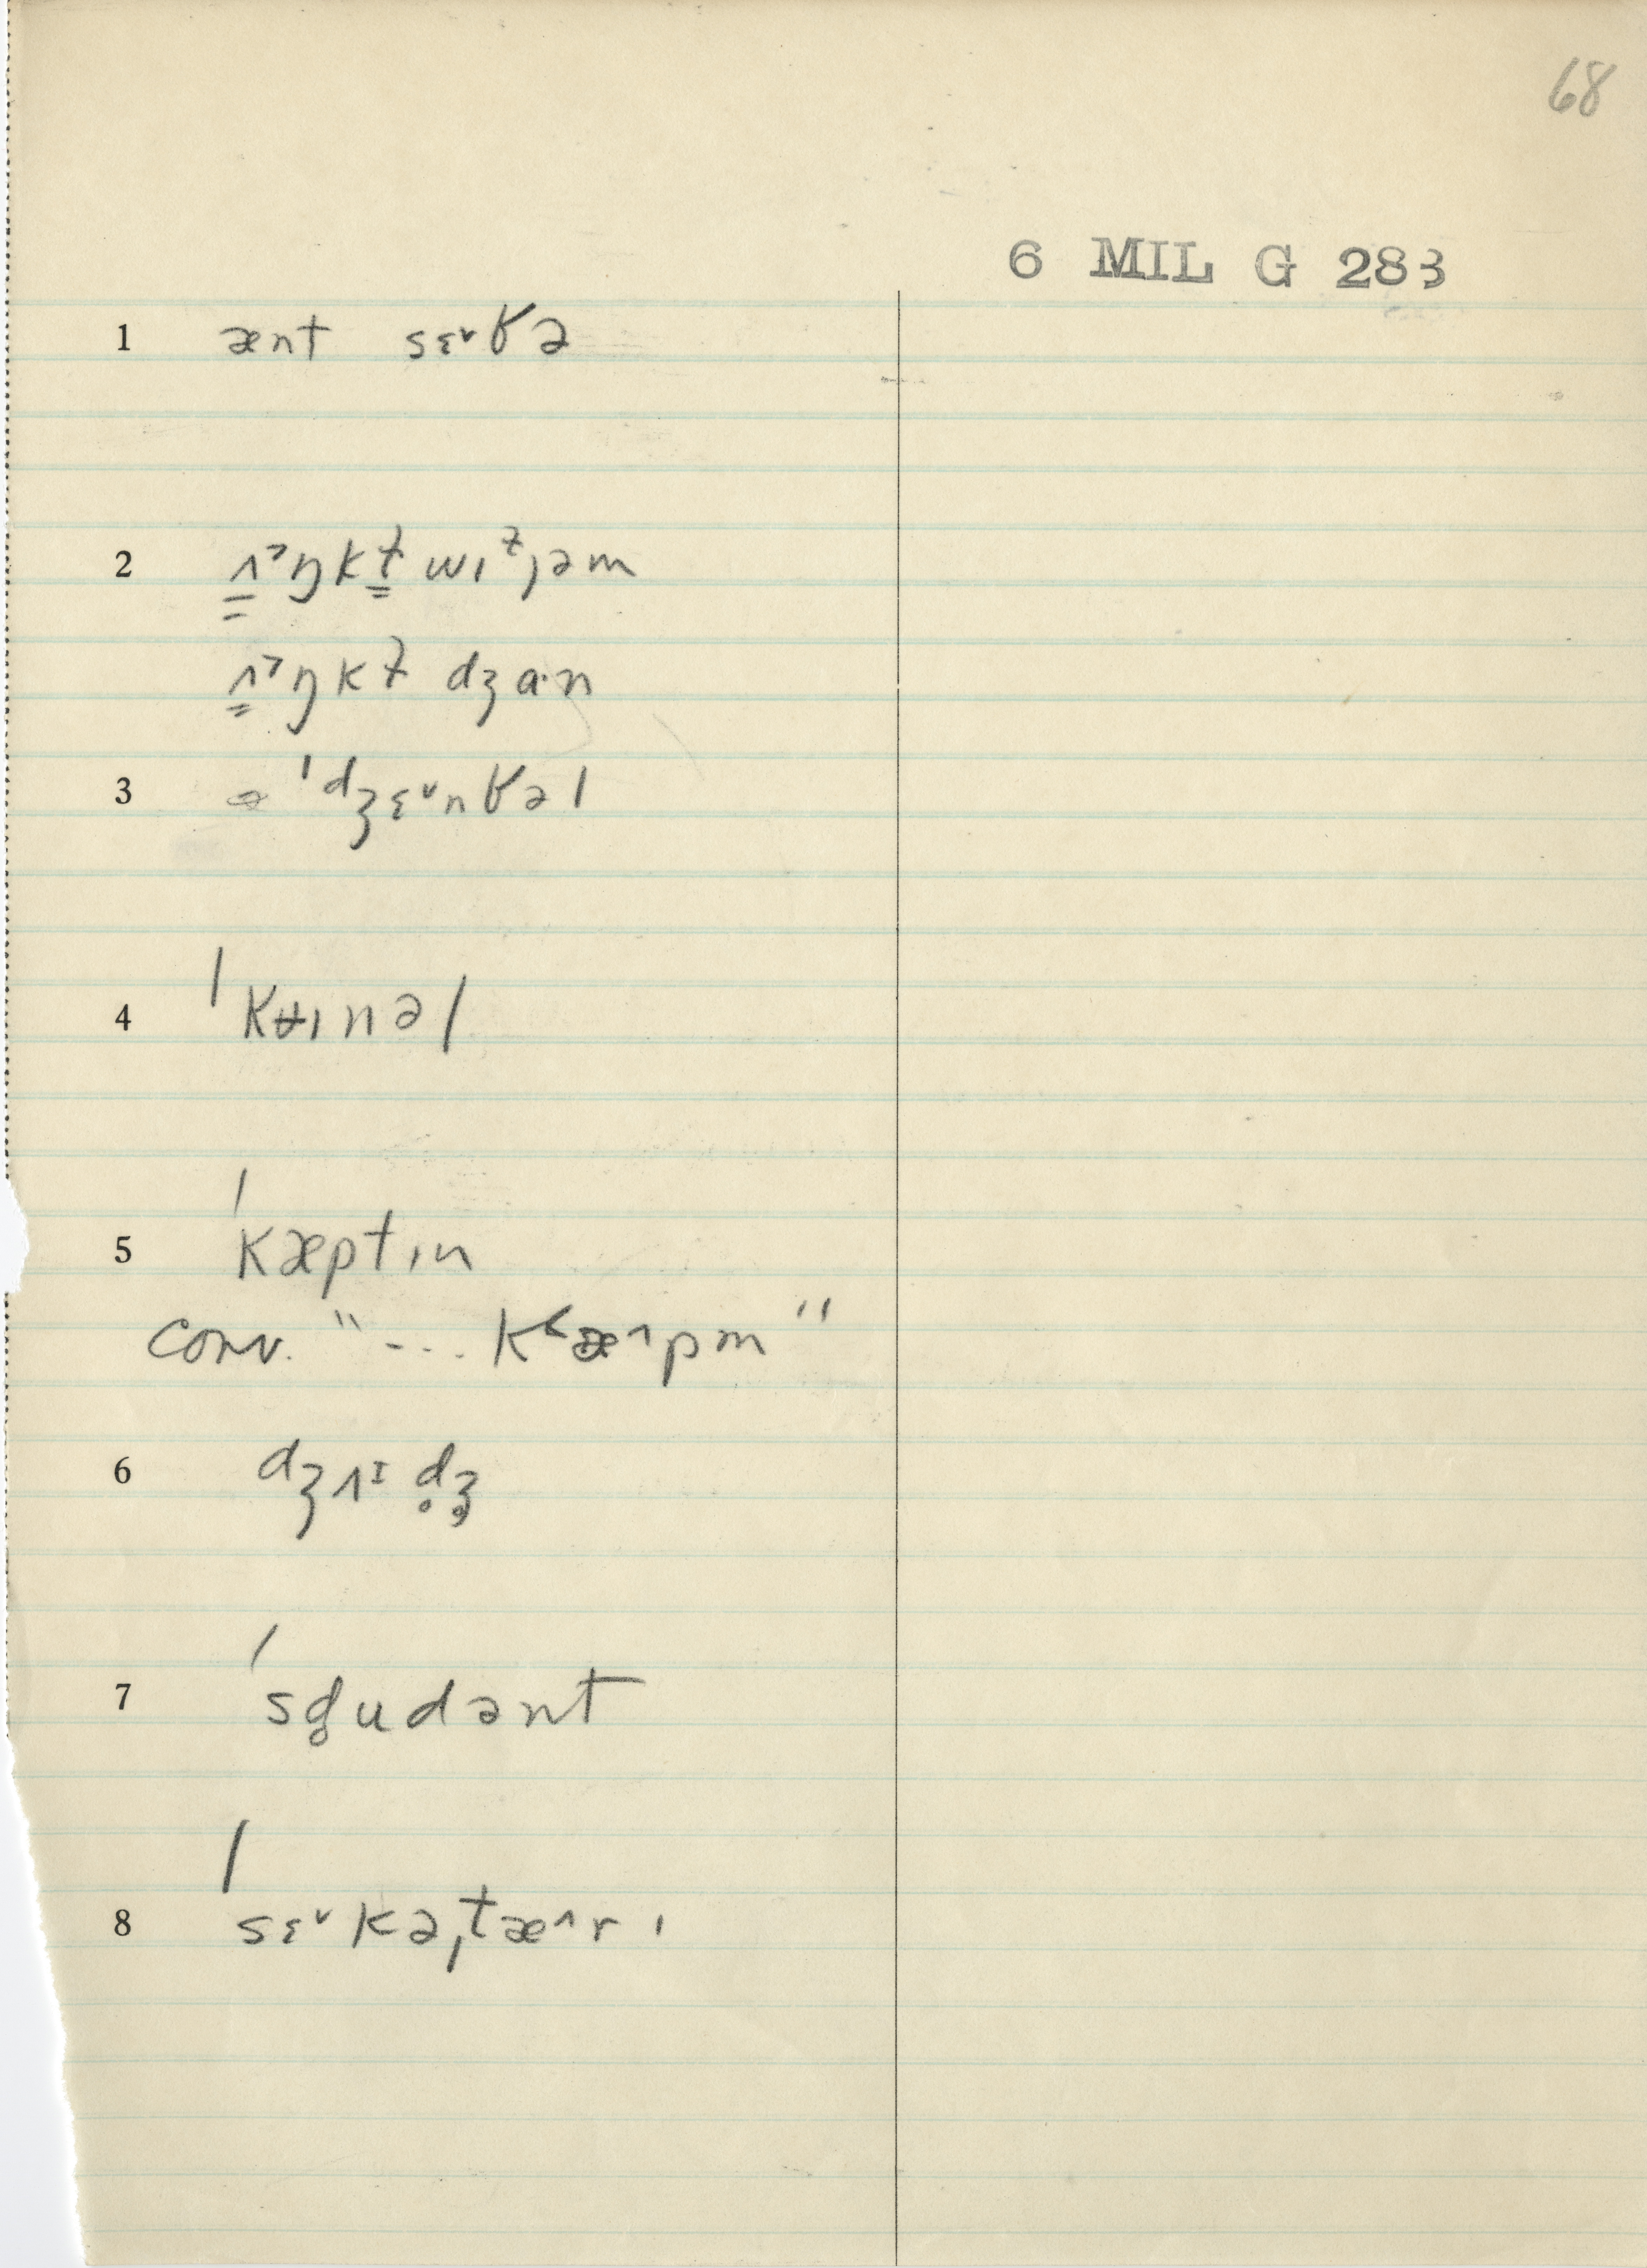 68
6 MIL G 283
1 ænt sɛ˅ꞣə
2 ʌˀŋkɫ wɪᶻjəm
ʌˀŋkɫ dʒɑ·n
3 ˈdʒɛ˅nꞣəl
4 ˈkʉɪnəl
5 ˈkæptɪn
conv. "--.. kʻæ˄pm"
6 dʒʌᴵd̥ʒ̥
7 ˈsd̥udənt
8 ˈsɛ˅kəˌtæ˄rɪ